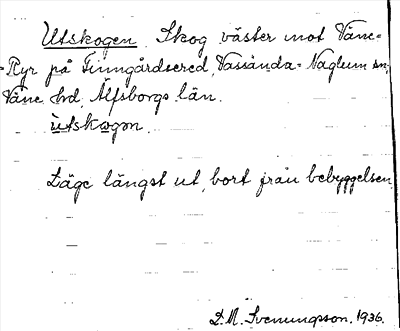 Utskogen. Skog väster mot Väne-
-Ryr på Finngårdsered, Vassända-Naglum sn,
Väne hd, Älfsborgs län.
ùtskωgɷn.
Läge längst ut, bort från bebyggelsen.
D.M. Svenungsson. 1936.